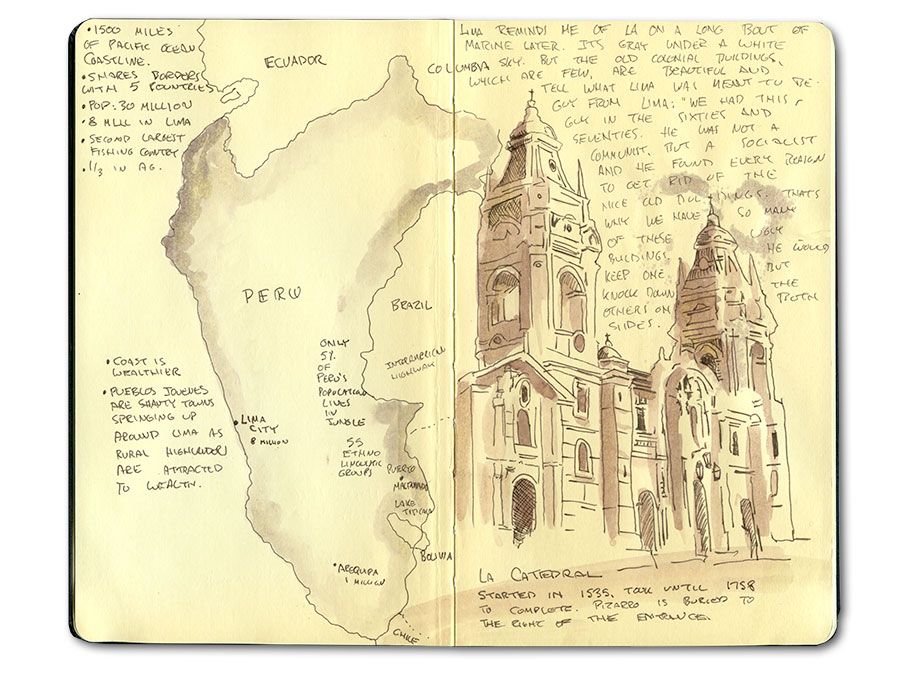 • 1500 MILES
OF PACIFIC OCEAN
COASTLINE.
• SHARES BORDERS
WITH 5 COUNTRIES
• POP: 30 MILLION
• 8 MILL IN LIMA
• SECOND LARGEST
FISHING COUNTRY
• 1/3 IN AG.
ECUADOR
COLUMBIA
PERU
BRAZIL
INTERAMERICAN
HIGHWAY
ONLY
5%
OF
PERU'S
POPULATION
LIVES
IN
JUNGLE
55
ETHNO
LINGUISTIC
GROUPS
• COAST IS
WEALTHIER
• PUEBLOS JOVENES
ARE SHANTY TOWNS
SPRINGING UP
AROUND LIMA AS
RURAL HIGHLANDERS
ARE ATTRACTED
TO WEALTH.
• LIMA
CITY
8 MILLION
PUERTO
MALDONADO
LAKE
TITICACA
BOLIVIA
• AREQUIPA
1 MILLION
CHILE
LIMA REMINDS ME OF LA ON A LONG BOUT OF
MARINE LAYER. ITS GRAY UNDER A WHITE
SKY. BUT THE OLD COLONIAL BUILDINGS,
WHICH ARE FEW, ARE BEAUTIFUL AND
TELL WHAT LIMA WAS MEANT TO BE.
GUY FROM LIMA: "WE HAD THIS
GUY IN THE SIXTIES AND
SEVENTIES. HE WAS NOT A
COMMUNIST, BUT A SOCIALIST
AND HE FOUND EVERY REASON
TO GET RID OF THE
NICE OLD BUILDINGS. THATS
WHY WE HAVE SO MANY
OF THESE UGLY
BUILDINGS. HE WOULD
KEEP ONE, BUT
KNOCK DOWN THE
OTHERS ON BOTH
SIDES.
LA CATEDRAL
STARTED IN 1535. TOOK UNTIL 1758
TO COMPLETE. PIZARRO IS BURIED TO
THE RIGHT OF THE ENTRANCE.